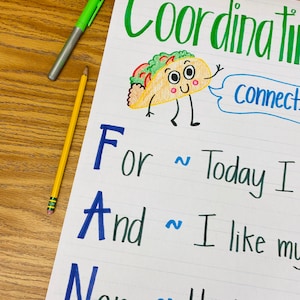 Coordinatin
Connect
For ~ Today I
And ~ I like my